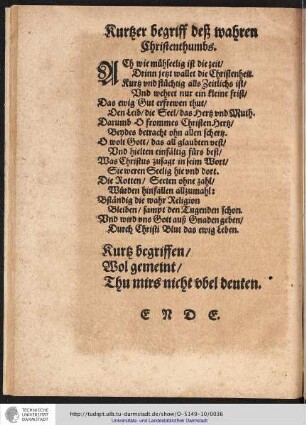 Kurtzer begriff deß wahren
Christenthumbs.
ACh wie mühseelig ist die zeit/
Drinn jetzt wallet die Christenheit.
Kurtz vnd flüchtig alls Zeitlichs ist/
Vnd wehret nur ein kleine frist/
Das ewig Gut erfrewen thut/
Den Leib/ die Seel/ das Hertz vnd Muth.
Darumb O frommes Christen Hertz/
Beydes betracht ohn allen schertz.
O wolt Gott/ das all glaubten vest/
Vnd hielten einfältig fürs best/
Was Christus zusagt in seim Wort/
Sie weren Seelig hie vnd dort.
Die Rotten/ Secten ohne zahl/
Würden hinfallen allzumahl:
Bständig die wahr Religion
Bleiben/ sampt den Tugenden schon.
Vnd wird vns Gott auß Gnaden geben/
Durch Christi Blut das ewig Leben.
Kurtz begriffen/
Wol gemeint/
Thu mirs nicht vbel deuten.
E N D E.
TECHNISCHE
UNIVERSITÄT
DARMSTADT
http://tudigit.ulb.tu-darmstadt.de/show/O-5349-10/0036
Universitäts- und Landesbibliothek Darmstadt